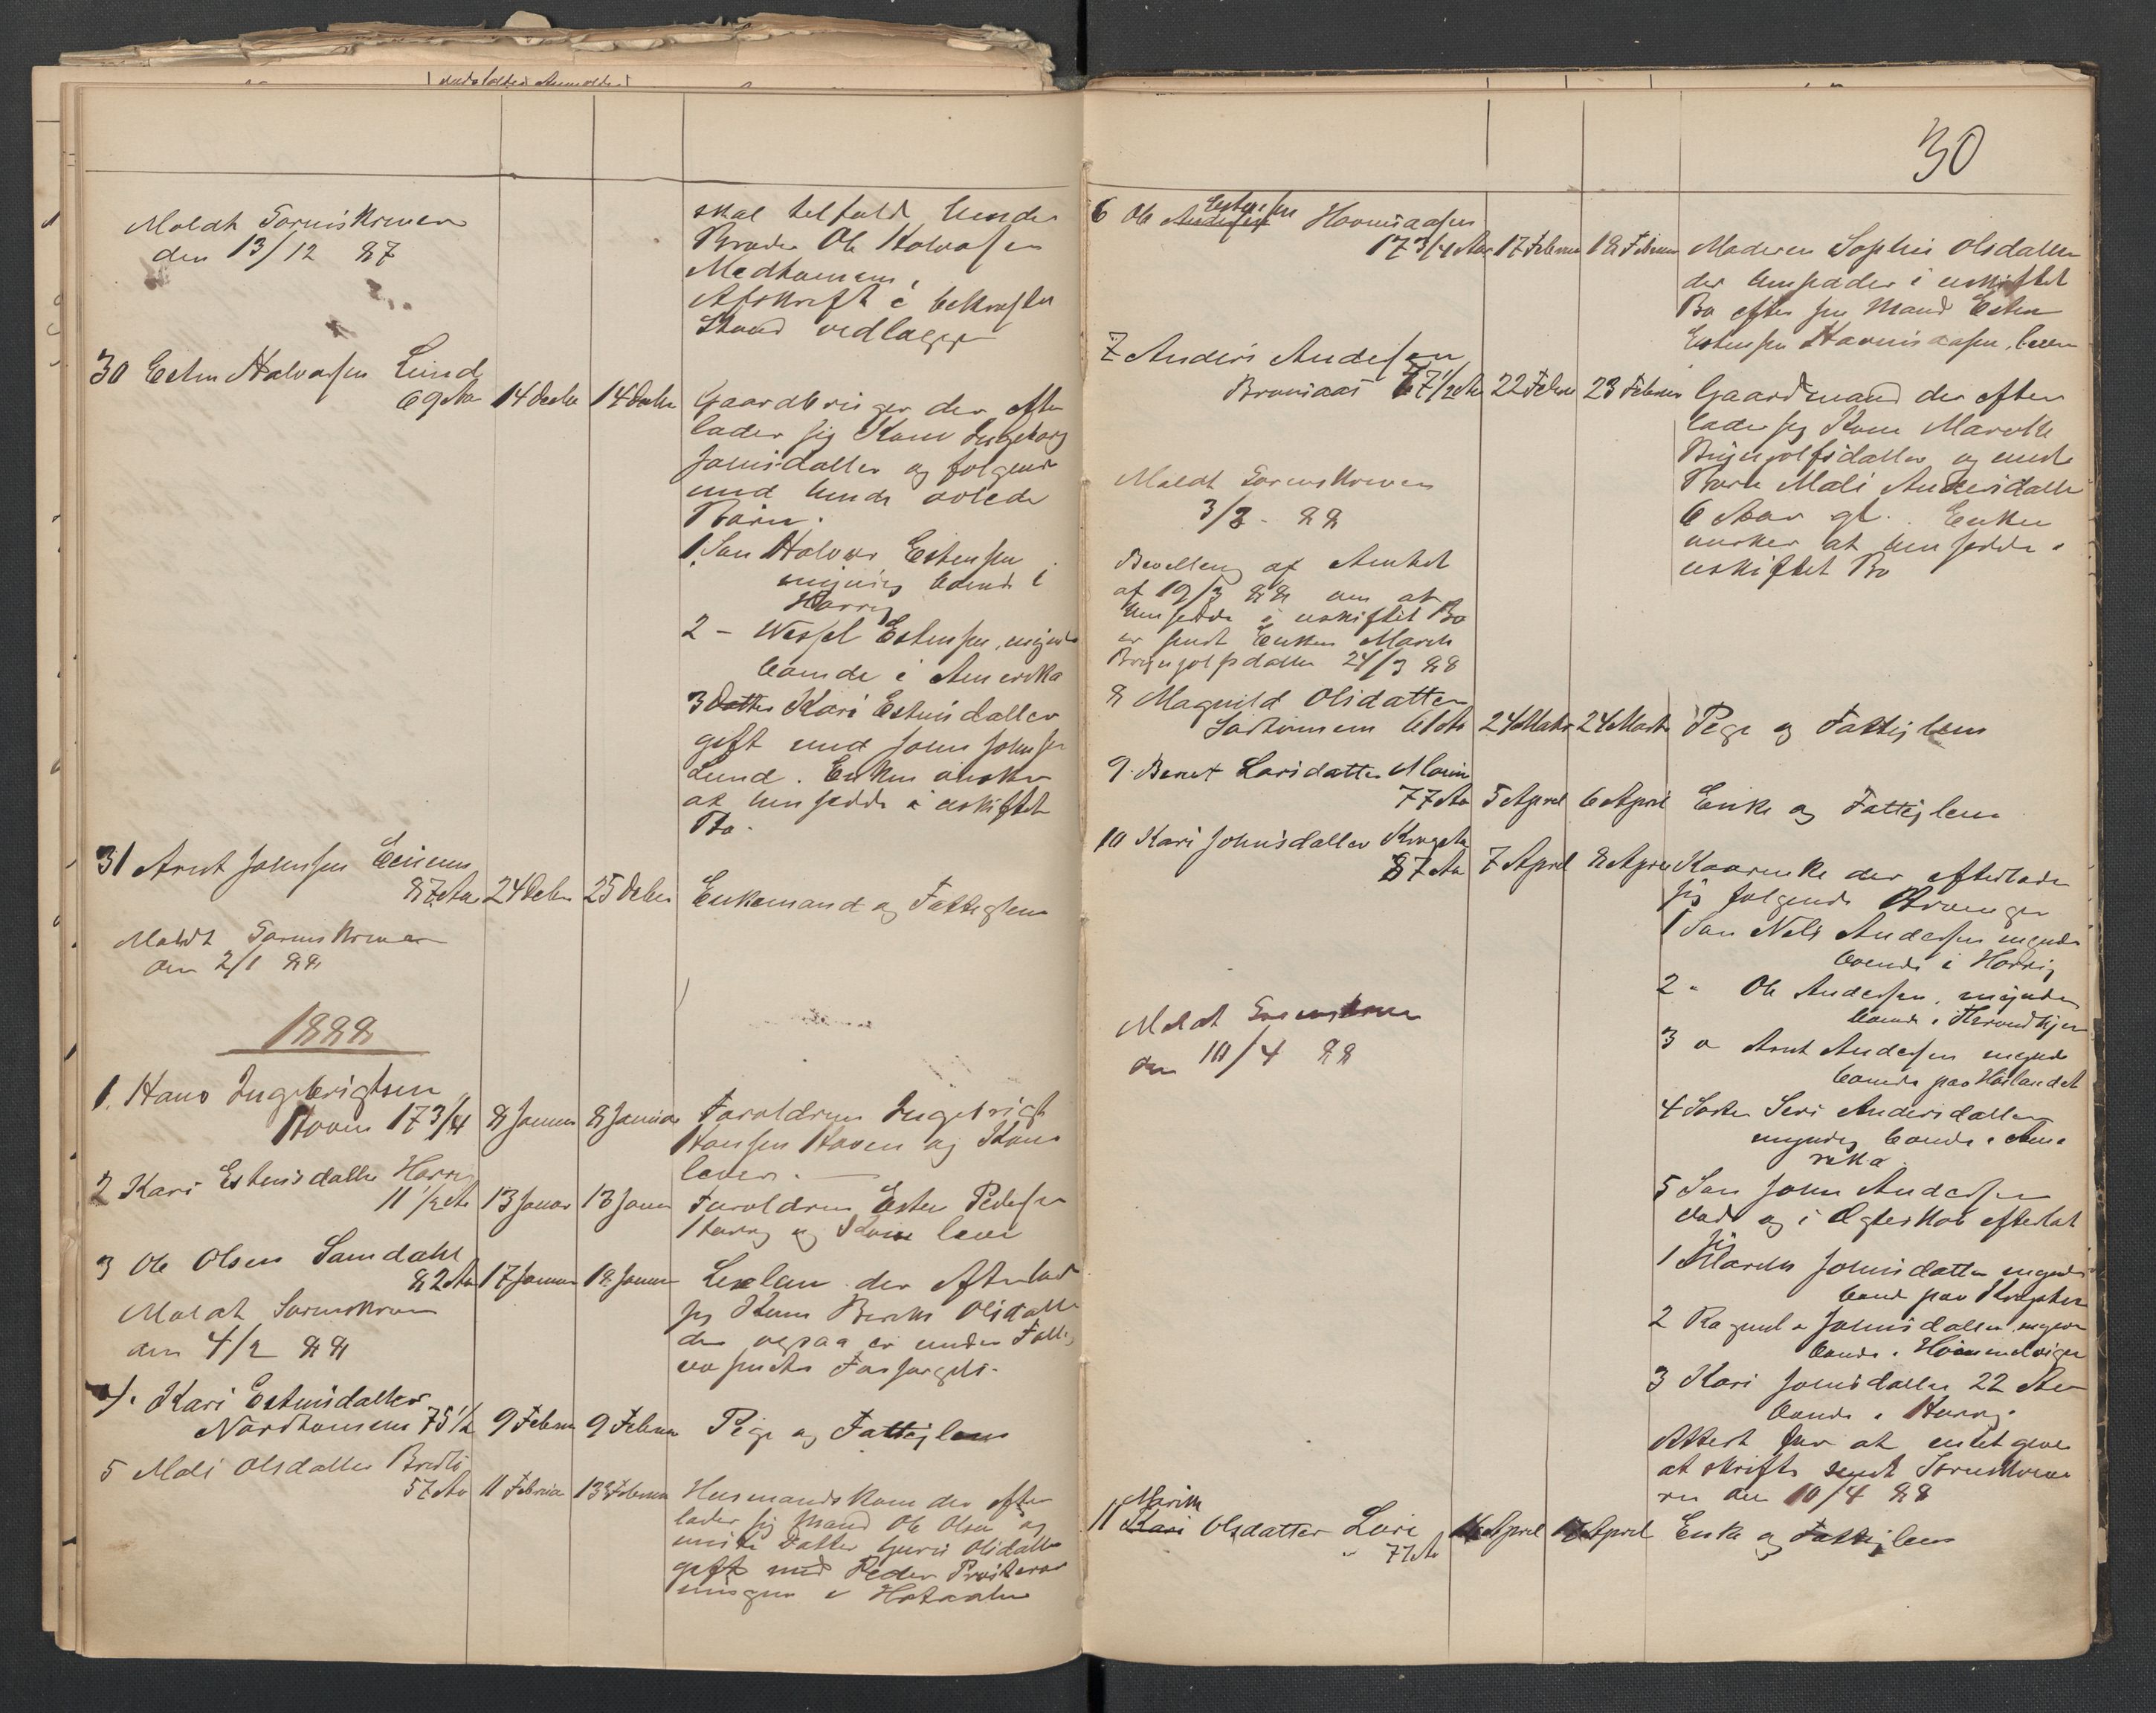 30
Meldt Sorenskriveren
den 13/12 87
skal tilfalde hendes
Broder Ole Halvorsen
Afskrift i bekræftet
Stand vedlægges
30 Esten Halvorsen Lund
69 Aar 14 Decbr 14 Decbr Gaardbruger der efter
lader sig Kone Ingeborg
Johnsdatter og følgende
med hende avlede
Børn.
1 Søn Halvor Estensen
myndig boende i
Horrig
2 - Wessel Estensen, myndig
boende i Amerika
3 Datter Kari Estensdatter
gift med John Johnsen
Lund. Enken ønsker
at hensidde i uskiftet
Bo.
31 Arnt Johnsen
87 Aar 24 Decbr 25 Decbr Enkemand og Fattiglem
Meldt Sorenskriveren
den 2/1 88
1888
1. Hans Ingebrigtsen
Hoven 17 3/4 8 Januar 8 Januar Forældrene Ingebrigt
Hansen Hoven og Kone
lever.
2 Kari Estensdatter Horrig
11 1/2 Aar 13 Januar 13 Januar Forældrene Esten Pedersen
Horrig og Kone lever
3 Ole Olsen Samdahl
82 Aar 17 Januar 18 Januar Leilæn. der efterlader
sig Kone Berit Olsdatter
der ogsaa er under Fattig
væsenets Forsørgelse.
Meldt Sorenskriveren
den 4/2 88
4. Kari Estensdatter
Nordhousem 75 1/2 9 Februar 9 Februar Pige og Fattiglem
5 Mali Olsdatter Bredli
57 Aar 11 Februar 13 Februar Husmandskone der efter
lader sig Mand Ole Olsen og
eneste Datter Guru Olsdatter
gift med Peder
i Hotaalen
6 Ole Andersen Estensen Hovmoaasen
17 3/4 Aar 17 Februar 18 Februar Moderen Sophie Olsdatter
der hensidder i uskiftet
Bo efter sin Mand Esten
Estensen Hovmoaasen, lever
7 Anders Andersen
67 1/2 Aar 22 Februar 23 Februar Gaardmand der efter
lader sig Kone Marethe
Brynjolfsdatter og eneste
Barn Mali Andersdatter
6 Aar gl. Enken
ønsker at hensidde i
uskiftet Bo
Meldt Sorenskriveren
3/3 - 88
Bevilling af Amtet
af 19/3 88 om at
hensidde i uskiftet Bo
er sendt Enken Mareth
Brynjolfsdatter 24/3 88
8 Magnild Olsdatter
61 Aar 24 Marts 24 Marts Pige og Fattiglem
9. Beret Larsdatter Moen
77 Aar 5 April 6 April Enke og Fattiglem
10 Kari Johnsdatter
87 Aar 7 April 8 April Kaarenke der efterlader
sig følgende Arvinger
1 Søn Nels Andersen myndig
boende i Horrig
2 " Ole Andersen, myndig
boende i Throndhjem
3 " Arnt Andersen myndig
boende paa Hølandet
4 Datter Seri Andersdatter
myndig boende i Ame
rika
5 Søn John Andersen
død og i Ægteskab efterladt
sig
1 Mareth Johnsdatter myndig
boende paa
2 Ragnild Johnsdatter myndig
boende i Hommelvigen
3 Kari Johnsdatter 22 Aar
boende i Horrig.
Attest for at intet gives
at skifte sendt Sorenskrive
ren den 10/4 88
Meldt Sorenskriveren
den 10/4 88
11 Kari Marith Olsdatter
77 Aar 16 April 17 April Enke og Fattiglem